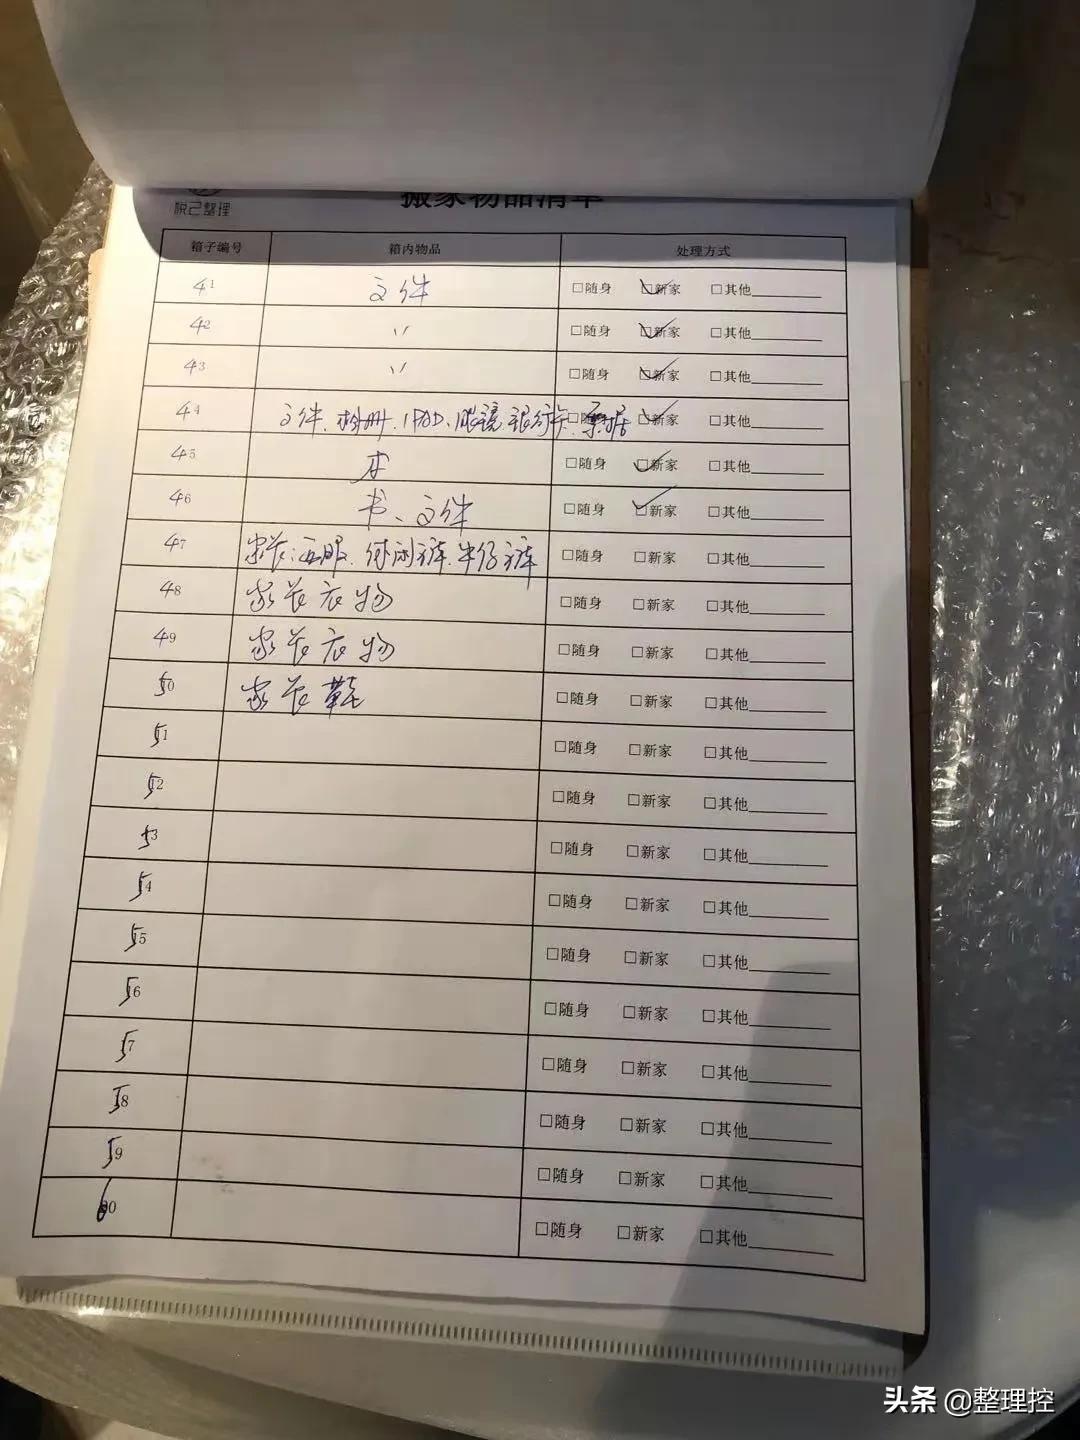 悦己整理
搬家物品清单
箱子编号 箱内物品 处理方式
41 文件 □随身 ☑新家 □其他________
42 〃 □随身 ☑新家 □其他________
43 〃 □随身 ☑新家 □其他________
44 文件、相册、IPAD、眼镜 银行卡、票据 □随 ☑新家 □其他________
45 本 □随身 ☑新家 □其他________
46 书、文件 □随身 ☑新家 □其他________
47 家长、西服、休闲裤、牛仔裤 □随身 □新家 □其他________
48 家长衣物 □随身 □新家 □其他________
49 家长衣物 □随身 □新家 □其他________
50 家长鞋 □随身 □新家 □其他________
51 □随身 □新家 □其他________
52 □随身 □新家 □其他________
53 □随身 □新家 □其他________
54 □随身 □新家 □其他________
55 □随身 □新家 □其他________
56 □随身 □新家 □其他________
57 □随身 □新家 □其他________
58 □随身 □新家 □其他________
59 □随身 □新家 □其他________
60 □随身 □新家 □其他________
头条 @整理控